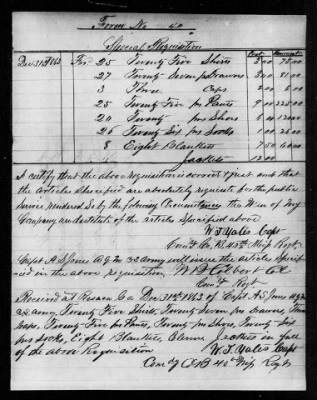 Form No 40
Special Requisition
Cost Amount
Dec 31st 1863 For 25 Twenty Five Shirts 3.00 75.00
27 Twenty Seven pr Drawers 3.00 81.00
3 Three Caps 2.00 6.00
25 Twenty Five pr Pants 9.00 225.00
20 Twenty pr Shoes 6.00 120.00
26 Twenty Six pr Socks 1.00 26.00
8 Eight Blankets 7.50 60.00
Jackets 12.00
I certify that the above requisition is correct & just and that
the articles specified are absolutely requisite for the public
service rendered so by the following Circumstances the Men of my
Company are destitute of the articles specified above
W. T. Yates Capt
Com'd Co. B, 43d Miss Regt.
Capt A S Jones AQM CS army will issue the articles speci-
fied in the above requisition,
Com'd Regt
Received at Resaca Ga Dec 31st 1863 of Capt A S Jones AQM
CS army, Twenty Five Shirts, Twenty Seven pr Drawers, Three
Caps, Twenty Five pr Pants, Twenty pr Shoes, Twenty Six
prs Socks, Eight Blankets, Eleven Jackets in full
of the above Requisition
W. T. Yates Capt
Com'g Co B Miss Regt